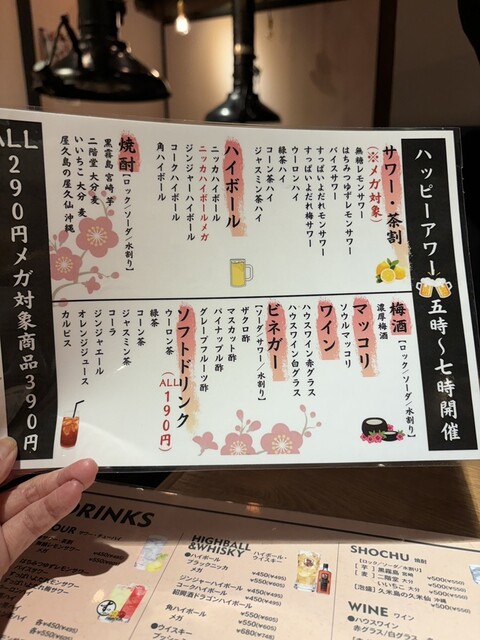 ハッピーアワー 五時〜七時開催
サワー・茶割
(※メガ対象)
無糖レモンサワー
はちみつゆずレモンサワー
バイスサワー
すっぱいよだれモンサワー
すっぱいよだれ梅サワー
ウーロンハイ
緑茶ハイ
コーン茶ハイ
ジャスミン茶ハイ
ハイボール
ニッカハイボールメガ
ニッカハイボール
ジンジャーハイボール
コークハイボール
角ハイボール
焼酎
[ロック/ソーダ/水割り]
黒霧島 宮崎 芋
二階堂 大分 麦
いいちこ 大分 麦
屋久島の屋久仙 沖縄
梅酒
[ロック/ソーダ/水割り]
濃厚梅酒
マッコリ
ソウルマッコリ
ワイン
ハウスワイン赤グラス
ハウスワイン白グラス
ビネガー
[ソーダ/サワー/水割り]
ザクロ酢
マスカット酢
パイナップル酢
グレープフルーツ酢
ソフトドリンク
(ALL190円)
ウーロン茶
緑茶
コーン茶
ジャスミン茶
コーラ
ジンジャエール
オレンジジュース
カルピス
ALL290円メガ対象商品390円
DRINKS
HIGHBALL
&WHISKY
ハイボール・
ウイスキー
●ハイボール
ブラックニッカ ¥450(¥495)
メガ ¥550(¥605)
ジンジャーハイボール ¥450(¥495)
コークハイボール ¥450(¥495)
超興酒ドラゴンハイボール
¥550(¥605)
角ハイボール ¥550(¥605)
メガ ¥680(¥748)
●ウイスキー
SHOCHU 焼酎
[ロック/ソーダ/水割り]
[芋] 黒霧島 宮崎 ¥500(¥550)
[麦] 二階堂 大分 ¥500(¥550)
いいちこ 大分 ¥500(¥550)
[泡盛] 久米島の久米仙 沖縄
¥500(¥550)
WINE ワイン
●ハウスワイン
赤グラス/白グラス